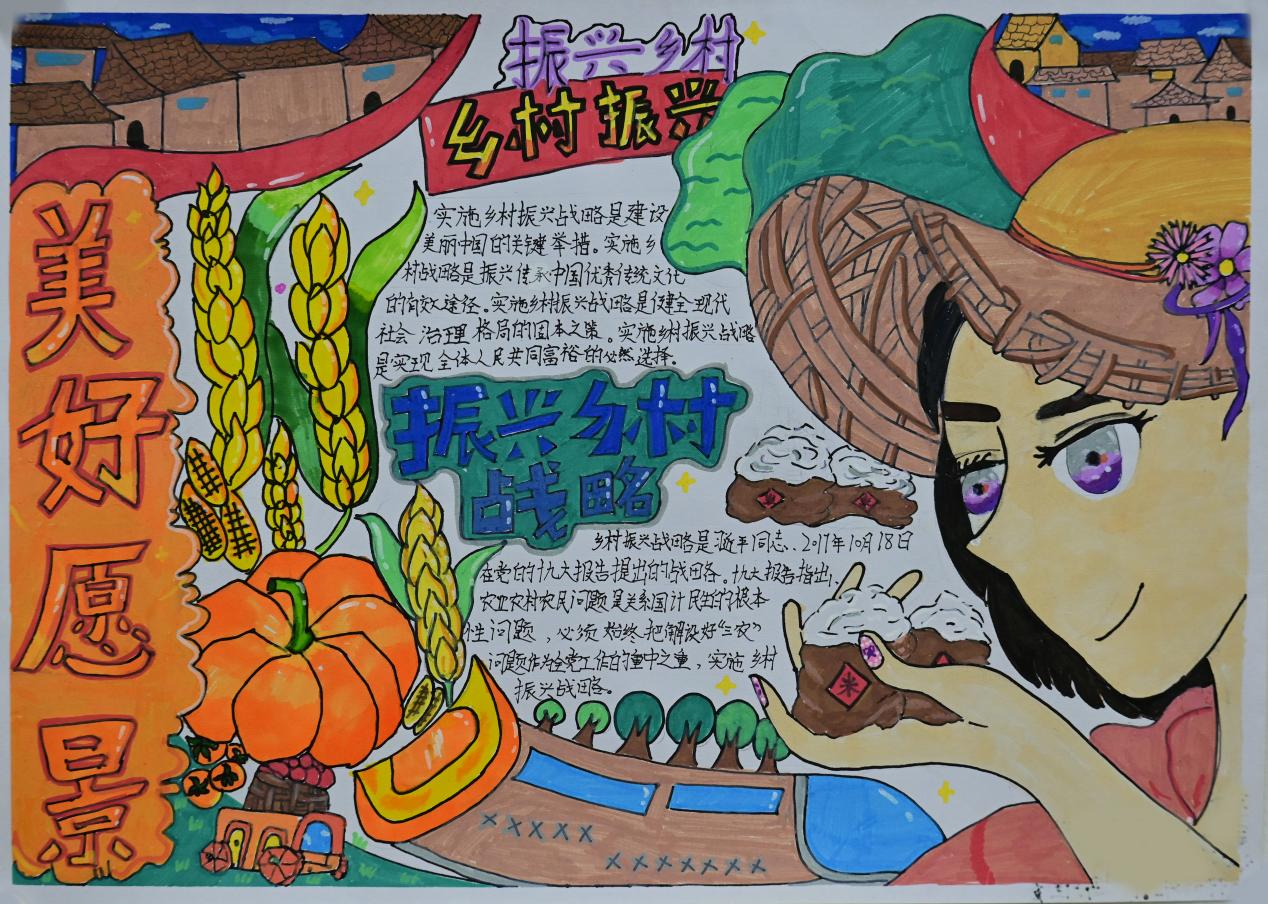 振兴乡村
乡村振兴
美好愿景
实施乡村振兴战略是建设
美丽中国的关键举措。实施乡
村战略是振兴传承中国优秀传统文化
的有效途径。实施乡村振兴战略是健全现代
社会治理格局的固本之策。实施乡村振兴战略
是实现全体人民共同富裕的必然选择。
振兴乡村
战略
乡村振兴战略是近平同志、2017年10月18日
在党的十九大报告提出的战略。十九大报告指出、
农业农村农民问题是关系国计民生的根本
性问题，必须始终把解决好"三农"
问题作为全党工作的重中之重，实施乡村
振兴战略。
米